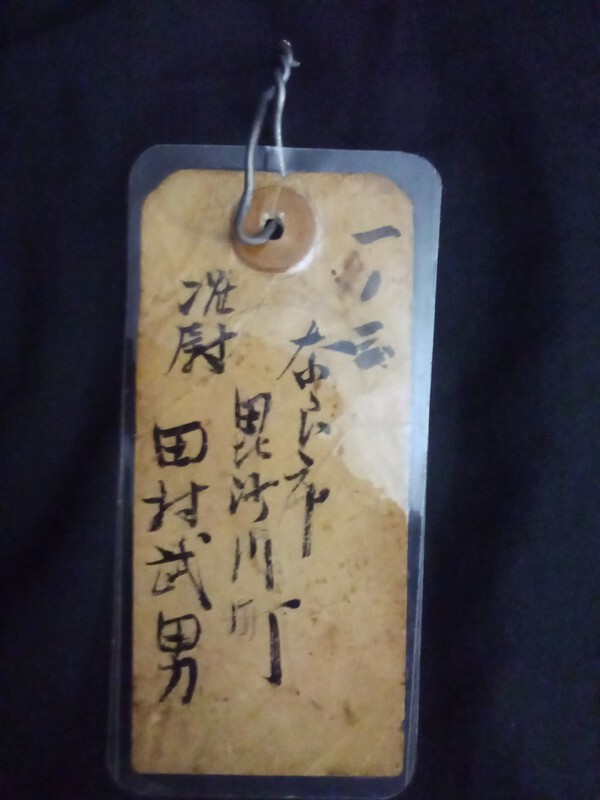 一ノ三
奈良市
毘沙川町
准尉 田村武男